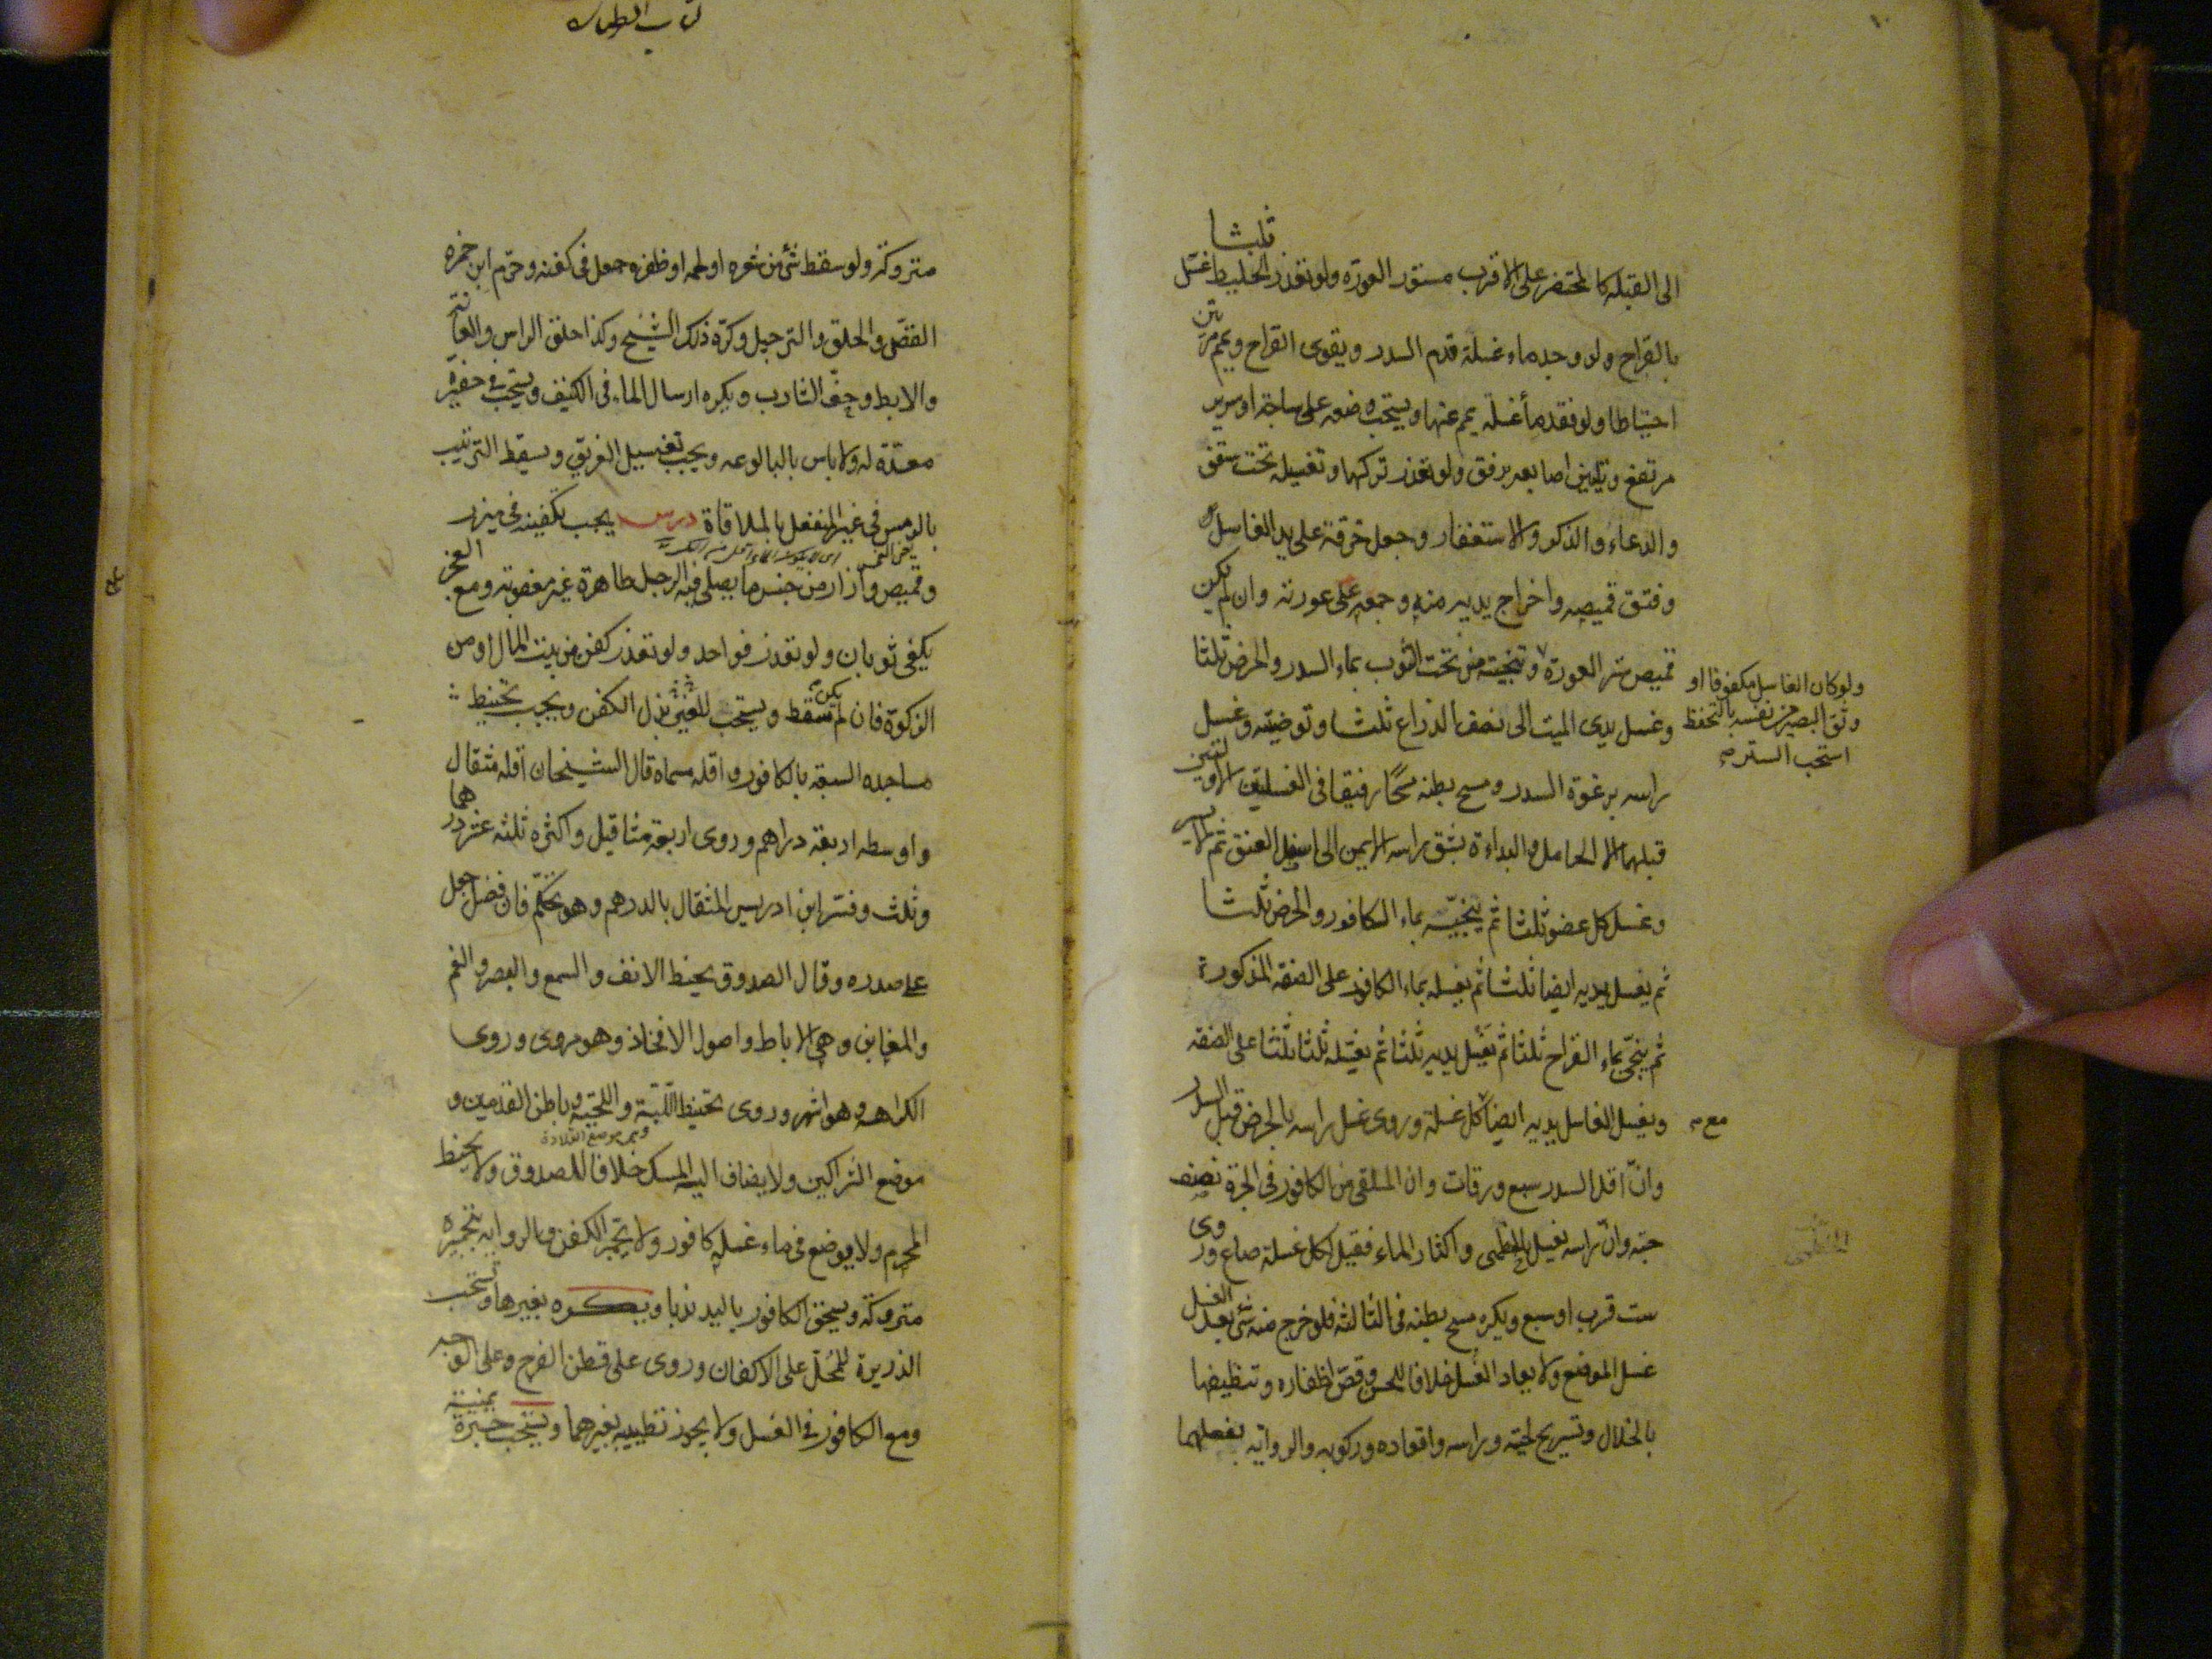 الى القبله كالمحتضر على الاقرب مستور العورة ولو تعذر الخليط غسّل ثلثا
بالقراح ولو وجد ماء غسلة قدم السدر ويقوى القراح ويمم مرتين
احتياطا ولو فقد ماء غسلة يمم عنها ويستحب وضعه على ساجة او سرير
مرتفع وتليين اصابعه برفق ولو تعذر تركها وتغسيله تحت سقف
والدعاء والذكر والاستغفار وجعل خرقة على يد الغاسل
وفتق قميصه واخراج يديه منه وجمعه على عورته وان لم يكن
قميص ستر العورة وتنجيته من تحت الثوب بماء السدر والحرض ثلثا
ولو كان الغاسل مكفوفا او
وثق البصير من نفسه بالتحفظ
استحب الستر
وغسل يدى الميت الى نصف الذراع ثلثا وتوضيته وغسل
راسه برغوة السدر ومسح بطنه مسحا رفيقا فى الغسلتين الاوليين
قبلهما الا الحامل والبداءة بشق راسه الايمن الى اسفل العنق ثم الايسر
وغسل كل عضو ثلثا ثم ينجيه بماء الكافور والحرض ثلثا
ثم يغسل يديه ايضا ثلثا ثم يغسله بماء الكافور على الصفة المذكورة
ثم ينجى بماء القراح ثلثا ثم يغسل يديه ثلثا ثم يغسله ثلثا ثلثا على الصفه
ويغسل الغاسل يديه ايضا كل غسلة وروى غسل راسه بالحرض قبل السدر
مع
وانّ اقل السدر سبع ورقات وان الملقى من الكافور فى الجرة نصف
حبه وان راسه يغسل بالخطمى واكثار الماء فقيل لكل غسلة صاع وروى
ست قرب او سبع ويكره مسح بطنه فى الثالثه فلو خرج منه شئ بعد الغسل
غسل الموضع ولا يعاد الغسل خلافا للحسن وقصّ اظفاره وتنظيفها
بالخلال وتسريح لحيته وراسه واقعاده وركوبه والرواية بفعلهما
متروكة ولو سقط شئ من شعره او لحمه او ظفره جعل فى كفنه وحرّم ابن حمزه
القصّ والحلق والترجيل وكرّه ذلك الشيخ وكذا حلق الراس والعانة
والابط وحفّ الشارب ويكره ارسال الماء فى الكنيف ويستحب فى حفيرة
معدّة له ولا باس بالبالوعه ويجب تغسيل الغريق ويسقط الترتيب
بالرمس فى غير المنفعل بالملاقاة درس يجب تكفينه فى ميزر
وقميص وازار من جنس ما يصلى فيه الرجل طاهرة غير مغصوبة ومع العجز
يكفى ثوبان ولو تعذر فواحد ولو تعذر كفن من بيت المال او من
الزكوة فان لم يكن سقط ويستحب للغير بذل الكفن ويجب تحنيط
مساجده السبعة بالكافور واقله مسماه قال الشيخان اقله مثقال
واوسطه اربعة دراهم وروى اربعة مثاقيل واكثره ثلثه عشر درهما
وثلث وفسّر ابن ادريس المثقال بالدرهم وهو تحكّم فان فضل جعل
على صدره وقال الصدوق يحنط الانف والسمع والبصر والفم
والمغابن وهى الاباط واصول الافخاذ وهو مروى وروى
الكراهه وهو اشهر وروى تحنيط اللبّة واللحية وباطن القدمين و
وهى موضع القلادة
موضع الشراكين ولا يضاف اليه المسك خلافا للصدوق ولا يحنط
المحرم ولا يوضع فى ماء غسله كافور ولا يجمّر الكفن والرواية بتجميره
متروكة ويسحق الكافور باليد ندبا ويكره بغيرها ويستحب
الذريرة للمحل على الاكفان وروى على قطن الفرج وعلى الوجه
ومع الكافور فى الغسل ولا يجوز تطييبه بغيرهما ويستحب حبرة يمنية